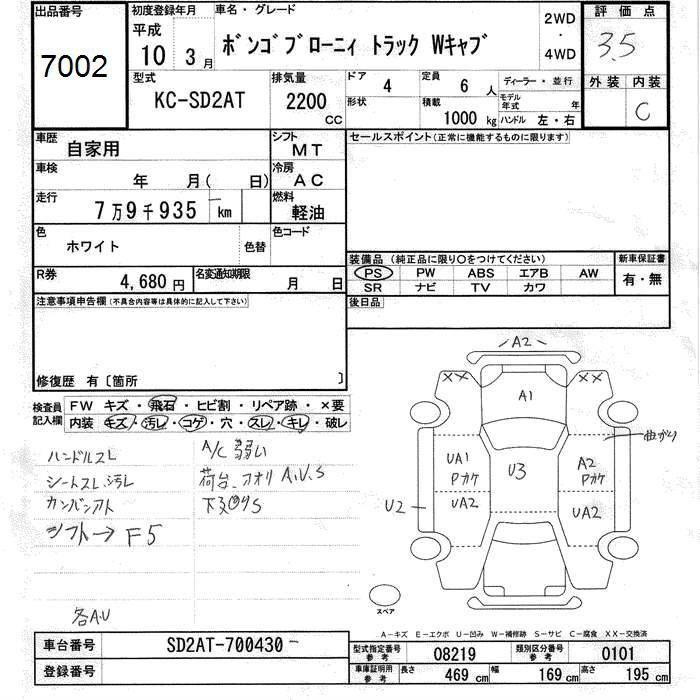 出品番号 7002
初度登録年月 平成 10 3月
車名・グレード ボンゴブローニィ トラック Wキャブ
2WD・4WD
評価点 3.5
外装 内装 C
型式 KC-SD2AT
排気量 2200 CC
ドア 4
形状
定員 6人
積載 1000 kg
ディーラー・並行
モデル年式 年
ハンドル 左・右
車歴 自家用
シフト MT
車検 年 月( 日)
冷房 AC
走行 7万9千935 km
燃料 軽油
色 ホワイト 色替
色コード
R券 4,680円
名変通知期限 月 日
セールスポイント(正常に機能するものに限ります)
装備品 (純正品に限り○をつけてください)
PS PW ABS エアB AW
SR ナビ TV カワ
新車保証書 有・無
後日品
注意事項申告欄(不具合内容等は具体的に記入して下さい)
修復歴 有〔箇所 〕
検査員記入欄
FW キズ・飛石・ヒビ割・リペア跡・×要
内装 キズ・汚レ・コゲ・穴・スレ・キレ・破レ
ハンドルスレ
シートスレ、汚レ
シフト→F5
各A.U
A/C 弱い
荷台、アオリ A.U.S
A2
XX XX
A1
曲がり
UA1 Pカケ
U3
A2 Pカケ
U2
UA2
UA2
スペア
A-キズ E-エクボ U-凹み W-補修跡 S-サビ C-腐食 XX-交換済
車台番号 SD2AT-700430
登録番号
型式指定番号 参考 08219
類別区分番号 参考 0101
車庫証明用 参考 長さ 469 cm 幅 169 cm 高さ 195 cm